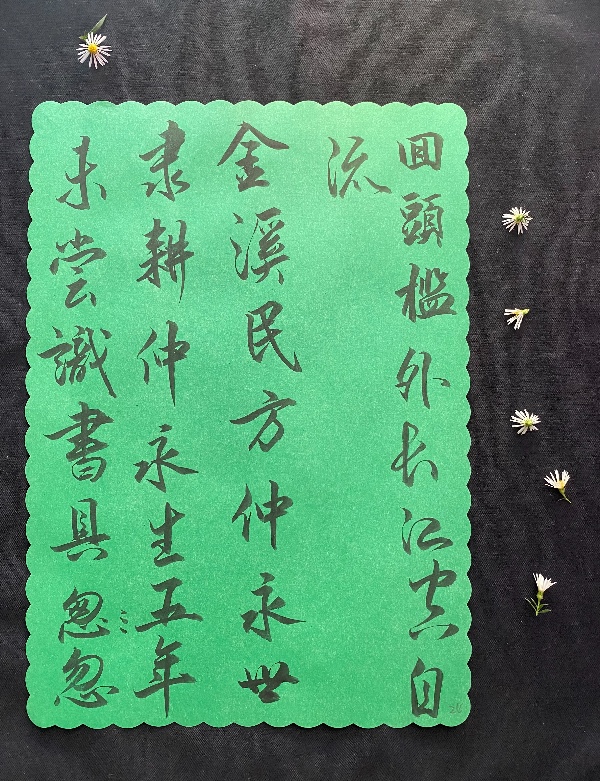 回頭檻外长江空自
流
金溪民方仲永世
隶耕仲永生五年
未尝識書具忽忽